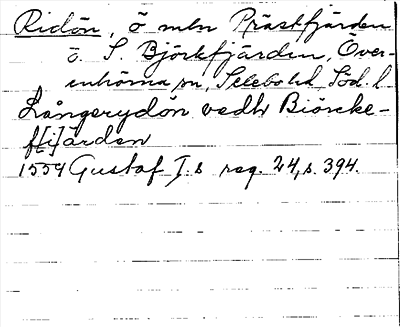 Ridön, ö mln Prästfjärden
o. S. Björkfjärden, Över-
enhörna sn, Selebo hd Söd. l.
Långerydön vedh Biörcke-
f[i]ärden
1554 Gustaf I:s reg. 24, s. 394.